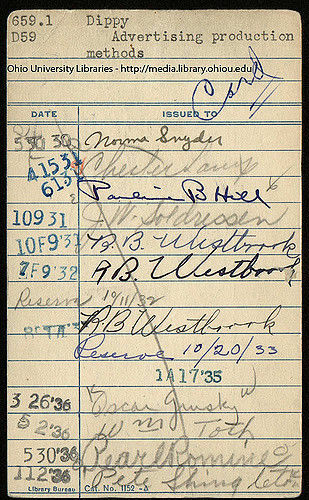 659.1 Dippy
D59 Advertising production
methods
Ohio University Libraries - http://media.library.ohiou.edu/
Card
DATE ISSUED TO
30 Norma Snyder
4 15 3 Chester
6 15 3 Pauline B Hill
10 9 31 J. W.
10F9'3 B. B. Westbrook
F9'32 RB Westbrook
Reserve 10/11/32
RB Westbrook
Reserve 10/20/33
1A17'35
3 26'36 "Oscar
5 2'36 W M Toth
5 30'36 Pearl Romine
11 2'36 Pete
Library Bureau Cat. No. 1152